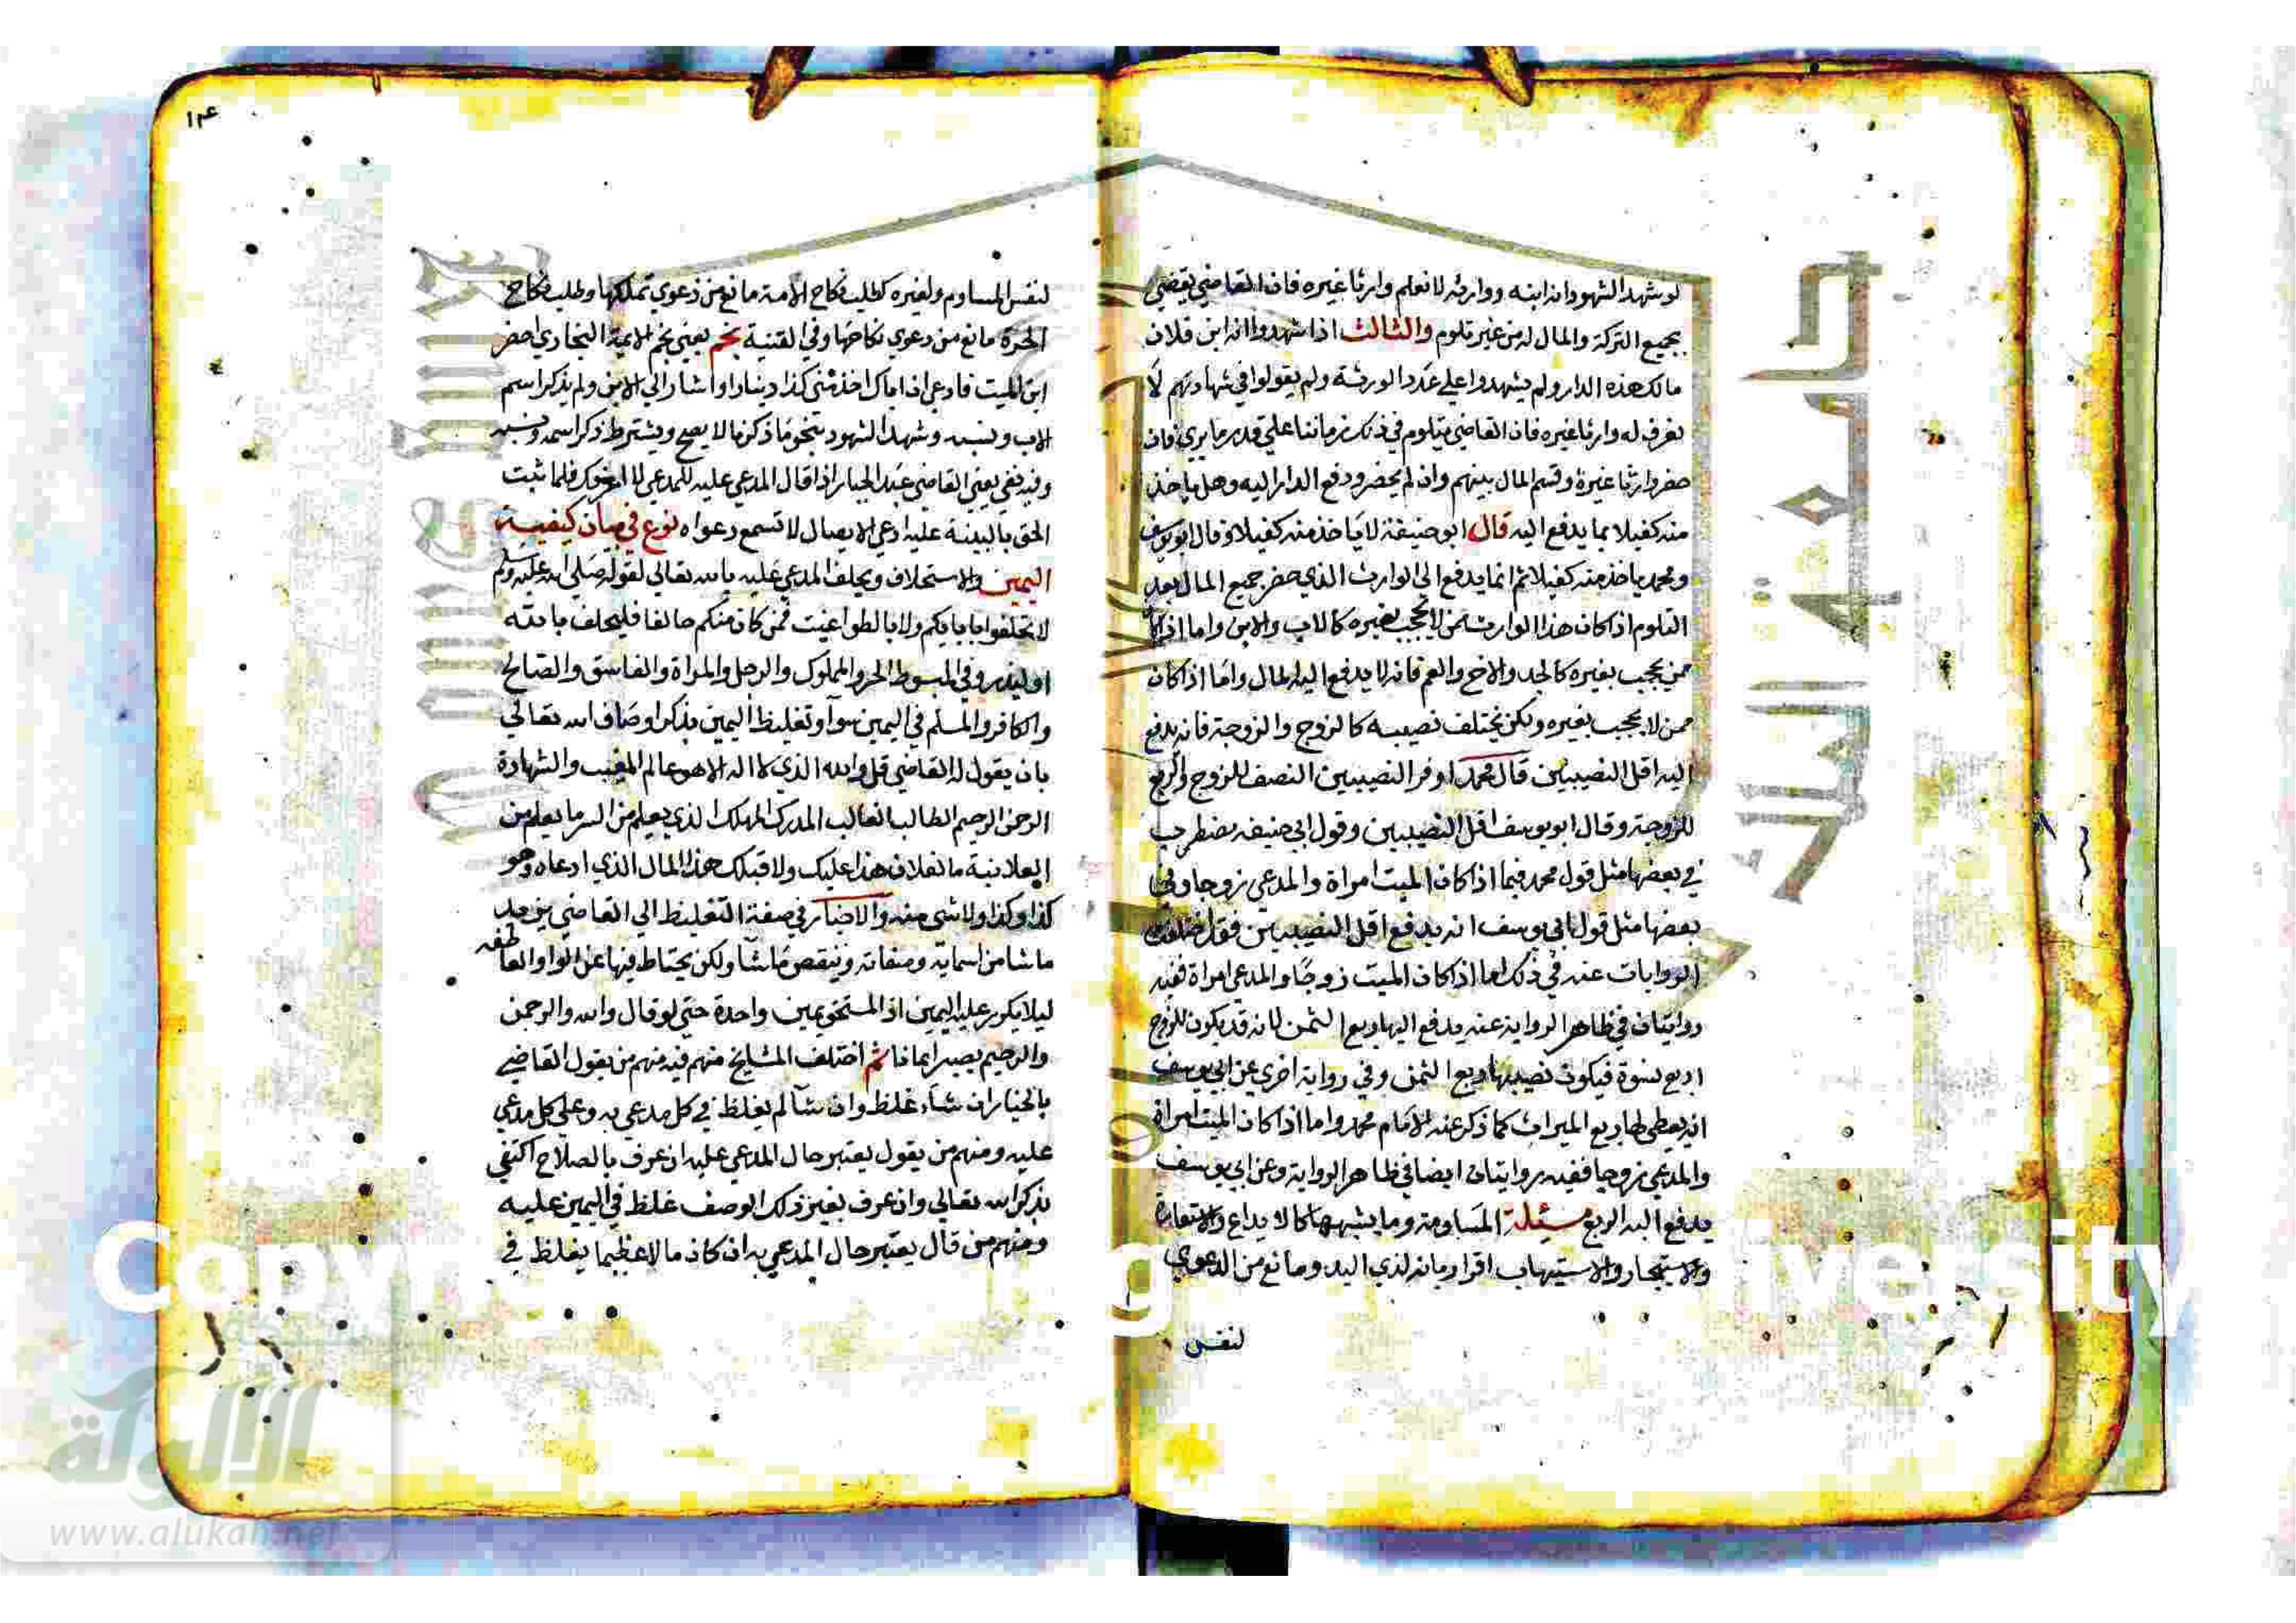 لو شهد الشهود انه ابنه ووارثه لا نعلم وارثا غيره فان القاضي يقضي
بجميع التركة والمال له من غير تلوم والثالث اذا شهدوا انه ابن فلان
مالك هذه الدار ولم يشهدوا علي عدد الورثة ولم يقولوا في شهادتهم لا
نعرف له وارثا غيره فان القاضي يتلوم في ذلك زمانا علي قدر ما يري فان
حضر وارثا غيره وقسم المال بينهم وان لم يحضر ودفع الدار اليه وهل ياخذ
منه كفيلا بما يدفع اليه قال ابو حنيفة لا ياخذ منه كفيلا وقال ابو يوسف
ومحمد ياخذ منه كفيلا ثم انما يدفع الي الوارث الذي حضر جميع المال بعد
التلوم اذا كان هذا الوارث ممن لا يحجب بغيره كالاب والابن واما اذا كان
ممن يحجب بغيره كالجد والاخ والعم فانه لا يدفع اليه المال واما اذا كان
ممن لا يحجب بغيره ولكن يختلف نصيبه كالزوج والزوجة فانه يدفع
اليه اقل النصيبين قال محمد اوفر النصيبين النصف للزوج والربع
للزوجة وقال ابو يوسف اقل النصيبين وقول ابي حنيفه مضطرب
في بعضها مثل قول محمد فيما اذا كان الميت امراة والمدعي زوجا وفي
بعضها مثل قول ابي يوسف انه يدفع اقل النصيبين فقد اختلفت
الروايات عنه في ذلك اما اذا كان الميت زوجا والمدعي امراة ففيه
روايتان في ظاهر الرواية عنه يدفع اليها ربع الثمن لانه قد يكون للزوج
اربع نسوة فيكون نصيبها ربع الثمن وفي رواية اخري عن ابي يوسف
انه يعطي لها ربع الميراث كما ذكر عنه للامام محمد واما اذا كان الميت امراة
والمدعي زوجا ففيه روايتان ايضا في ظاهر الرواية وعن ابي يوسف
يدفع اليه الربع مسئلة المساومة وما يشبهها كالايداع والاستعارة
والاستيجار والاستيهاب اقرار بانه لذي اليد ومانع من الدعوي
لنفس
١٣٤
لنفس المساوم ولغيره كطلب نكاح الامة مانع من دعوي تملكها وطلب نكاح
الحرة مانع من دعوي نكاحها وفي القنية نجم يعني نجم الايمة البخاري احضر
ابن الميت فادعي ان اباك اخذ مني كذا دينارا واشار الي الابن ولم يذكر اسم
الاب ونسبه وشهد الشهود بنحو ما ذكرنا لا يصح ويشترط ذكر اسمه ونسبه
وفيه فغي يعني القاضي عبد الجبار اذا قال المدعي عليه للمدعي لا اعرفك فلما ثبت
الحق بالبينة عليه ادعي الايصال لا تسمع دعواه نوع في بيان كيفية
اليمين والاستحلاف ويحلف المدعي عليه بالله تعالي لقوله صلي الله عليه وسلم
لا تحلفوا بابايكم ولا بالطواغيت فمن كان منكم حالفا فليحلف بالله
او ليذر وفي المبسوط الحر والمملوك والرجل والمراة والفاسق والصالح
والكافر والمسلم في اليمين سوآ وتغليظ اليمين بذكر اوصاف الله تعالي
بان يقول له القاضي قل والله الذي لا اله الا هو عالم الغيب والشهادة
الرحمن الرحيم الطالب الغالب المدرك المهلك الذي يعلم من السر ما يعلم من
العلانية ما لفلان هذا عليك ولا قبلك هذا المال الذي ادعاه وهو
كذا وكذا ولا شي منه والاختيار في صفة التغليظ الي القاضي يزيد
ما شا من اسمايه وصفاته وينقص ما شا ولكن يحتاط فيها عن الواو العاطفه
ليلا يكرر عليه اليمين اذ المستحق يمين واحدة حتي لو قال والله والرحمن
والرحيم يصير ايمانا ثم اختلف المشايخ منهم فيه منهم من يقول القاضي
بالخيار ان شاء غلظ وان شآ لم يغلظ في كل مدعي به وعلي كل مدعي
عليه ومنهم من يقول يعتبر حال المدعي عليه ان عرف بالصلاح اكتفي
بذكر الله تعالي وان عرف بغير ذلك الوصف غلظ في اليمين عليه
ومنهم من قال يعتبر حال المدعي به ان كان مالا عظيما يغلظ في
جامعة الملك سعود
الألوكة
www.alukah.net